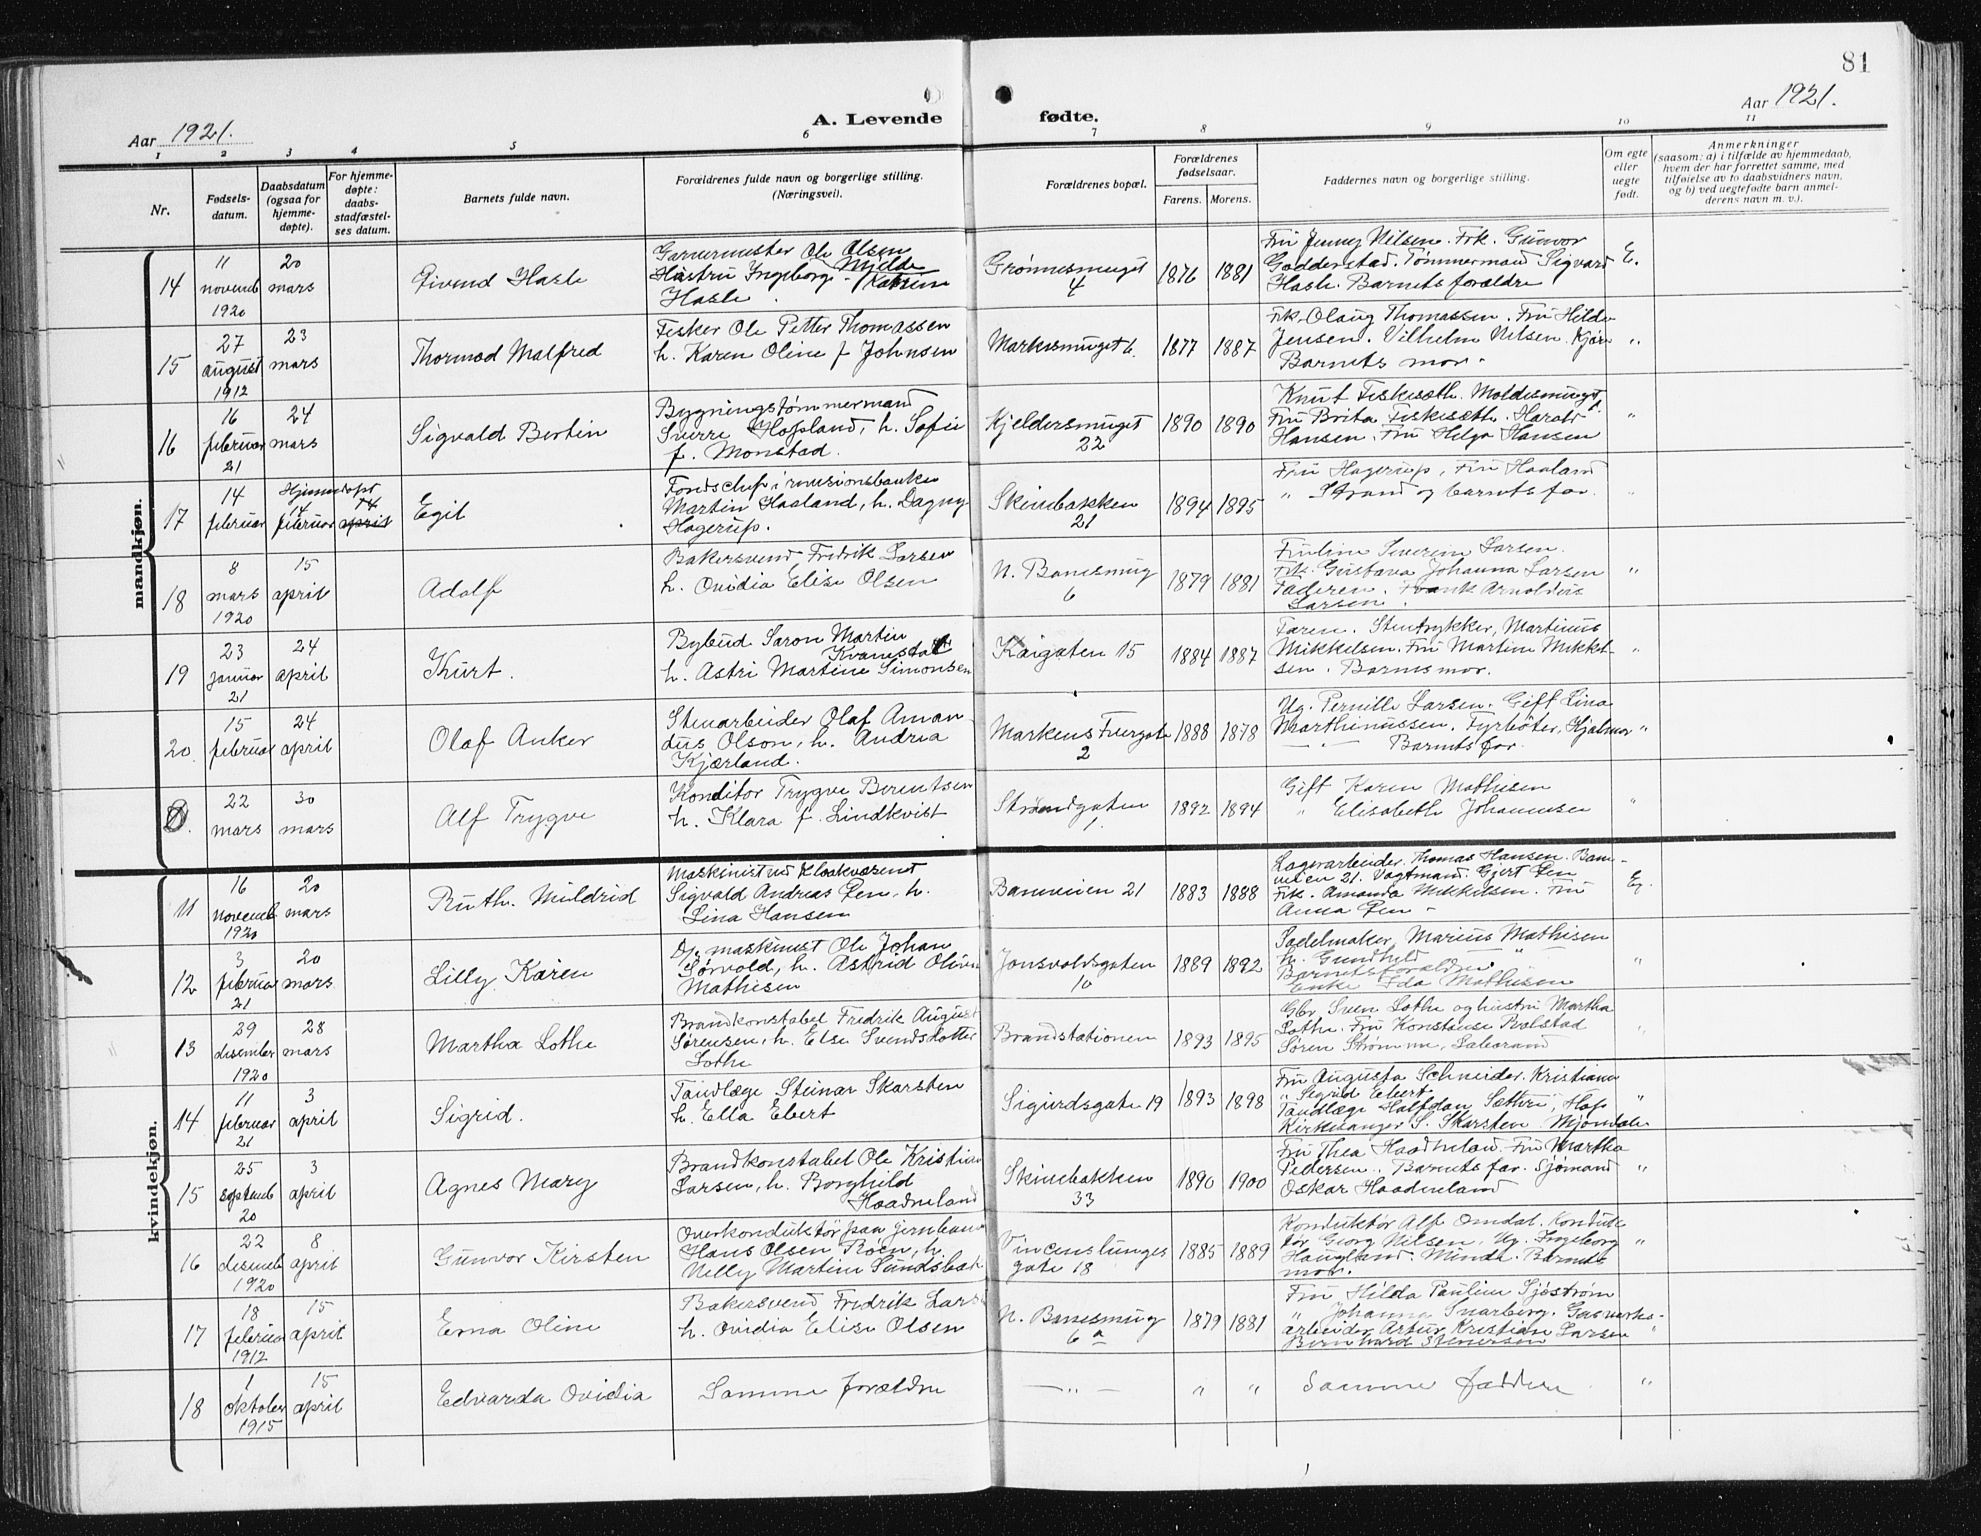 81
Aar 1921.
A. Levende fødte.
Aar 1921.
1 2 3 4 5 6 7 8 9 10 11
Nr.
Fødsels-
datum.
Daabsdatum
(ogsaa for
hjemme-
døpte).
For hjemme-
døpte:
daabs-
stadfæstel-
ses datum.
Barnets fulde navn.
Forældrenes fulde navn og borgerlige stilling.
(Næringsvei).
Forældrenes bopæl.
Forældrenes
fødselsaar.
Farens. Morens.
Faddernes navn og borgerlige stilling.
Om egte
eller
uegte
født.
Anmerkninger
(saasom: a) i tilfælde av hjemmedaab,
hvem der har forrettet samme, med
tilføielse av to daabsvidners navn,
og b) ved uegtefødte barn anmel-
derens navn m. v.).
mandkjøn.
14
11
novemb
1920
20
mars
Eivind Hasle
Garvermester Ole Olsen
Hustru Ingeborg Mjelde Katrine
Hasle.
Grønnesmuget
4
1876 1881
Fru Jenny Nilsen. Frk. Gunvor
Gadderstad. Tømmermand Sigvard
Hasle. Barnets forældre
E.
15
27
august
1912
23
mars
Thormod Malfred
Fisker Ole Petter Thomassen
h. Karen Oline f. Johnsen
Markesmuget 6.
1877 1887
Frk. Olaug Thomassen. Fru Hilda
Jensen. Vilhelm Nilsen. Kjøre
Barnets mor.
"
16
16
februar
21
24
mars
Sigvald Bertin
Bygningstømmermand
Sverre Hopland, h. Sofie
f. Monstad.
Kjeldersmuget
22
1890 1890
Knut Fiskesæth. Moldesmuget
Fru Brita Fiskesæth. Harald
Hansen. Fru Helga Hansen
"
17
14
februar
Hjemmedøpt
14
februar
24
april
Egil
Fondschef i revisionsbanken
Martin Haaland, h. Dagny
Hagerup.
Skivebakken
21
1894 1895
Fru Hagerup, Fru Haaland
" Strand og barnets far.
"
18
8
mars
1920
15
april
Adolf
Bakersvend Fredrik Larsen
h. Ovidia Elise Olsen
N. Banesmug
6
1879 1881
Severin Larsen.
Frk. Gustava Johanna Larsen
Faderen. Frank Arnoldus
Larsen.
"
19
23
januar
21
24
april
Kurt.
Bybud Saron Martin
Kvamstad
h. Astri Martine Simonsen
Kaigaten 15
1884 1887
Faren. Stentrykker, Martinus
Mikkelsen. Fru Martine Mikkel-
sen. Barnets mor.
"
20
15
februar
24
april
Olaf Anker
Stenarbeider Olaf Aman-
dus Olson, h. Andrea
Kjærland.
Markens Tvergate
2
1888 1878
Ug. Pernille Larsen. Gift Lina
Marthinussen. Fyrbøter, Hjalmar
— " — Barnets far.
"
22
mars
30
mars
Alf Trygve
Konditor Trygve Berentsen
h. Klara f. Lindkvist
Strandgaten
1.
1892 1894
Gift Karen Mathisen
" Elisabeth Johannesen
"
kvindekjøn.
11
16
novemb
1920
20
mars
Ruth. Mildrid
Maskinist ved Kloakvæsenet
Sigvald Andreas Øen, h.
Lina Hansen
Baneveien 21
1883 1888
Lagerarbeider. Thomas Hansen. Bane-
veien 21. Vagtmand. Gjert Øen
Frk. Amanda Mikkelsen. Fru
Anna Øen.
Eg.
12
3
februar
21
20
mars
Lilly Karen
Dp. maskinist Ole Johan
Sørvold, h. Astrid Olivia
Mathisen
Jonsvoldsgaten
10
1889 1892
Sadelmaker, Marius Mathisen
h. Gundhild "
Barnets forældre
Enke Ida Mathisen
"
13
29
desember
1920
28
mars
Martha Lothe
Brandkonstabel Fredrik August
Sørensen, h. Else Svendsdotter
Lothe
Brandstationen
1893 1895
Gbr. Sven Lothe og hustru Martha
Lothe. Fru Konstanse Rolstad
Søren Strømme, Laksevaag
"
14
11
februar
21
3
april
Sigrid.
Tandlæge Steinar Skarsten
h. Ella Ebert
Sigurdsgate 19
1893 1898
Fru Augusta Schneider. Kristiania
" Sigrid Ebert
Tandlæge Halfdan Sætter, Hof
Kirkesanger S. Skarsten Mjøndalen
"
15
25
septemb
20
3
april
Agnes Mary
Brandkonstabel Ole Kristian
Larsen, h. Borghild
Haadneland
Skivebakken
33
1890 1900
Fru Thea Haadneland. Fru Martha
Pedersen. Barnets far. Sjømand
Oskar Haadneland
"
16
22
desemb
1920
8
april
Gunvor Kirsten
Overkonduktør paa jernbanen
Hans Olsen Roen, h.
Nelly Martine Sundsbak
Vincenslunges
gate 18
1885 1889
Konduktør Alf Omdal. Konduk-
tør Georg Nilsen, Ug. Ingeborg
Haugland. Minde. Barnets
mor.
"
17
18
februar
1912
15
april
Erna Oline
Bakersvend Fredrik Larsen
h. Ovidia Elise Olsen
N. Banesmug
6 a
1879 1881
Fru Hilda Pauline Sjøstrøm
" Johanna Snarberg. Gasverks-
arbeider Artur Kristian Larsen
Bernhard Stenersen
"
18
1
oktober
1915
15
april
Edvarda Ovidia
Samme forældre
— " —
" "
Samme faddere
"